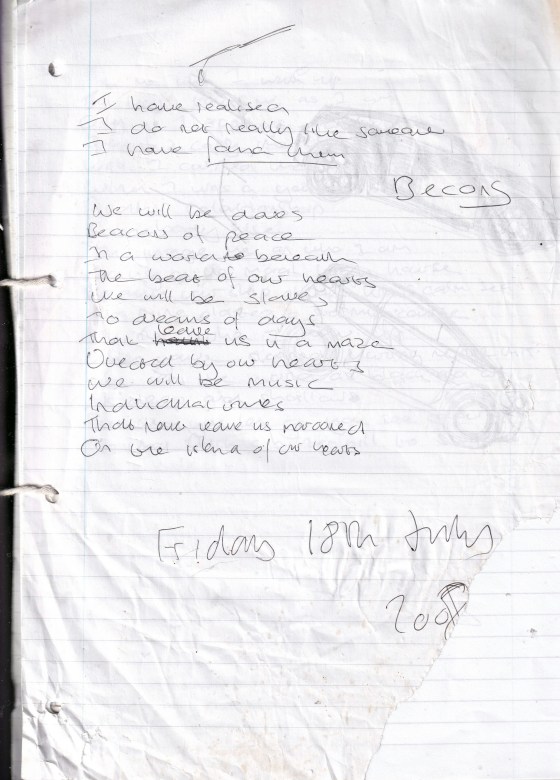 I have realised
I do not really like someone
I have found them
Becons
We will be daxes
Beacons of peace
In a world to beneath
The beat of our hearts
We will be slaves
To dreams of days
That leave us in a maze
Overed by our hearts
We will be music
Individual tunes
Thats have leave us marooned
On the island of our hearts
Friday 18th July
2008